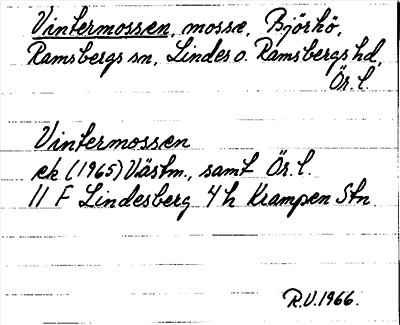 Vintermossen, mosse, Björhö,
Ramsbergs sn, Lindes o. Ramsbergs hd,
Ör. l.
Vintermossen
ek (1965) Västm., samt Ör. l.
11 F Lindesberg 4 h Krampen Stn
R.V. 1966.